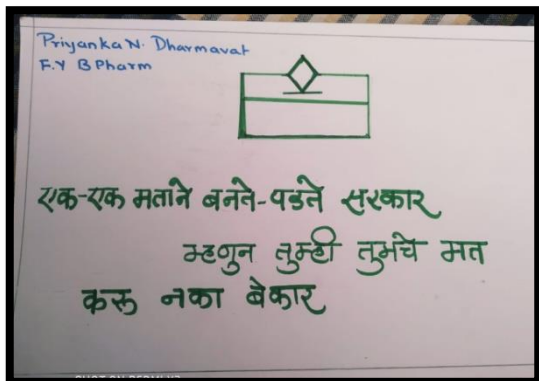 Priyanka N. Dharmavat
F.Y B Pharm
एक-एक मताने बनते-पडते सरकार
म्हणुन तुम्ही तुमचे मत
करू नका बेकार